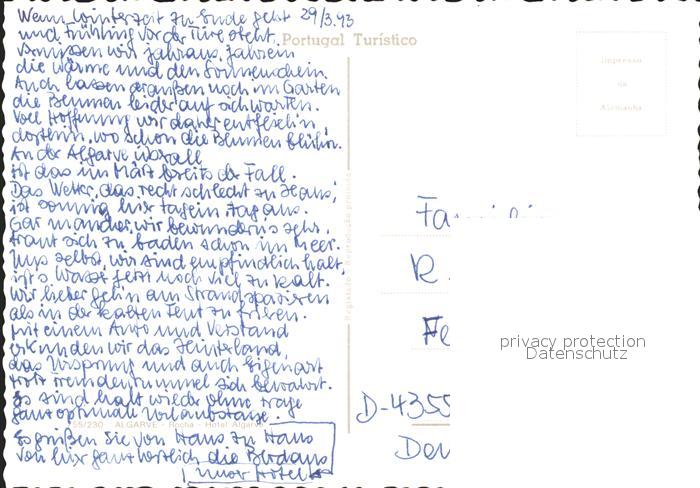 Wenn Winterzeit zu Ende geht 29/3.93
und Frühling vor der Türe steht,
vermissen wir jahraus, jahrein
die Wärme und den Sonnenschein.
Auch lassen draußen noch im Garten
die Blumen leider auf sich warten.
Voll Hoffnung wir daher entfliehn,
dorthin, wo schon die Blumen blühn.
An der Algarve überall
ist das im März bereits der Fall.
Das Wetter, das recht schlecht zu Haus,
ist sonnig hier tagein, tagaus.
Gar mancher, wir bewundern's sehr,
traut sich zu baden schon im Meer.
Uns selbst, wir sind empfindlich halt,
ist's Wasser jetzt noch viel zu kalt.
Wir lieber gehn am Strand spazieren
als in der kalten Flut zu frieren.
Mit einem Auto und Verstand
erkunden wir das Hinterland,
das Ursprung und auch Eigenart
trotz Fremdenrummel sich bewahrt.
Es sind halt wieder ohne Frage
ganz optimale Urlaubstage.
55/230 ALGARVE - Rocha - Hotel Algarve
Es grüßen Sie von Haus zu Haus
von hier ganz herzlich die
unser Hotel
Portugal Turístico
Impresso
na
Alemanha
Registado Reprodução proibida
Fa
R.
Fe
D-4355
Dou
privacy protection
Datenschutz